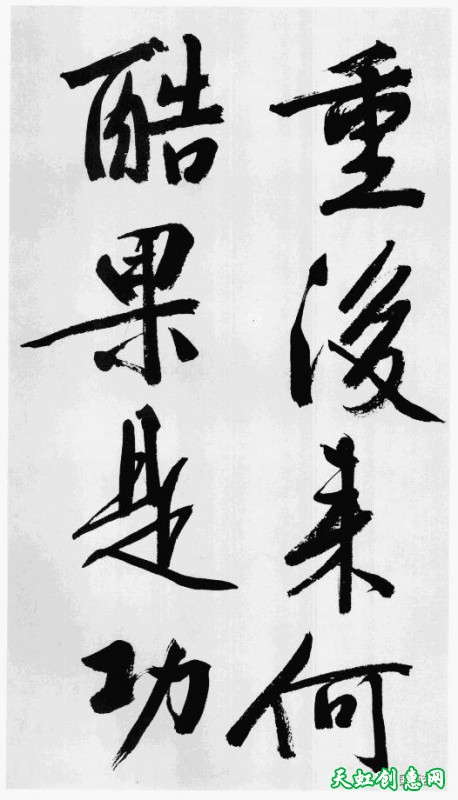 重後来何
酷果是功
天虹创惠网